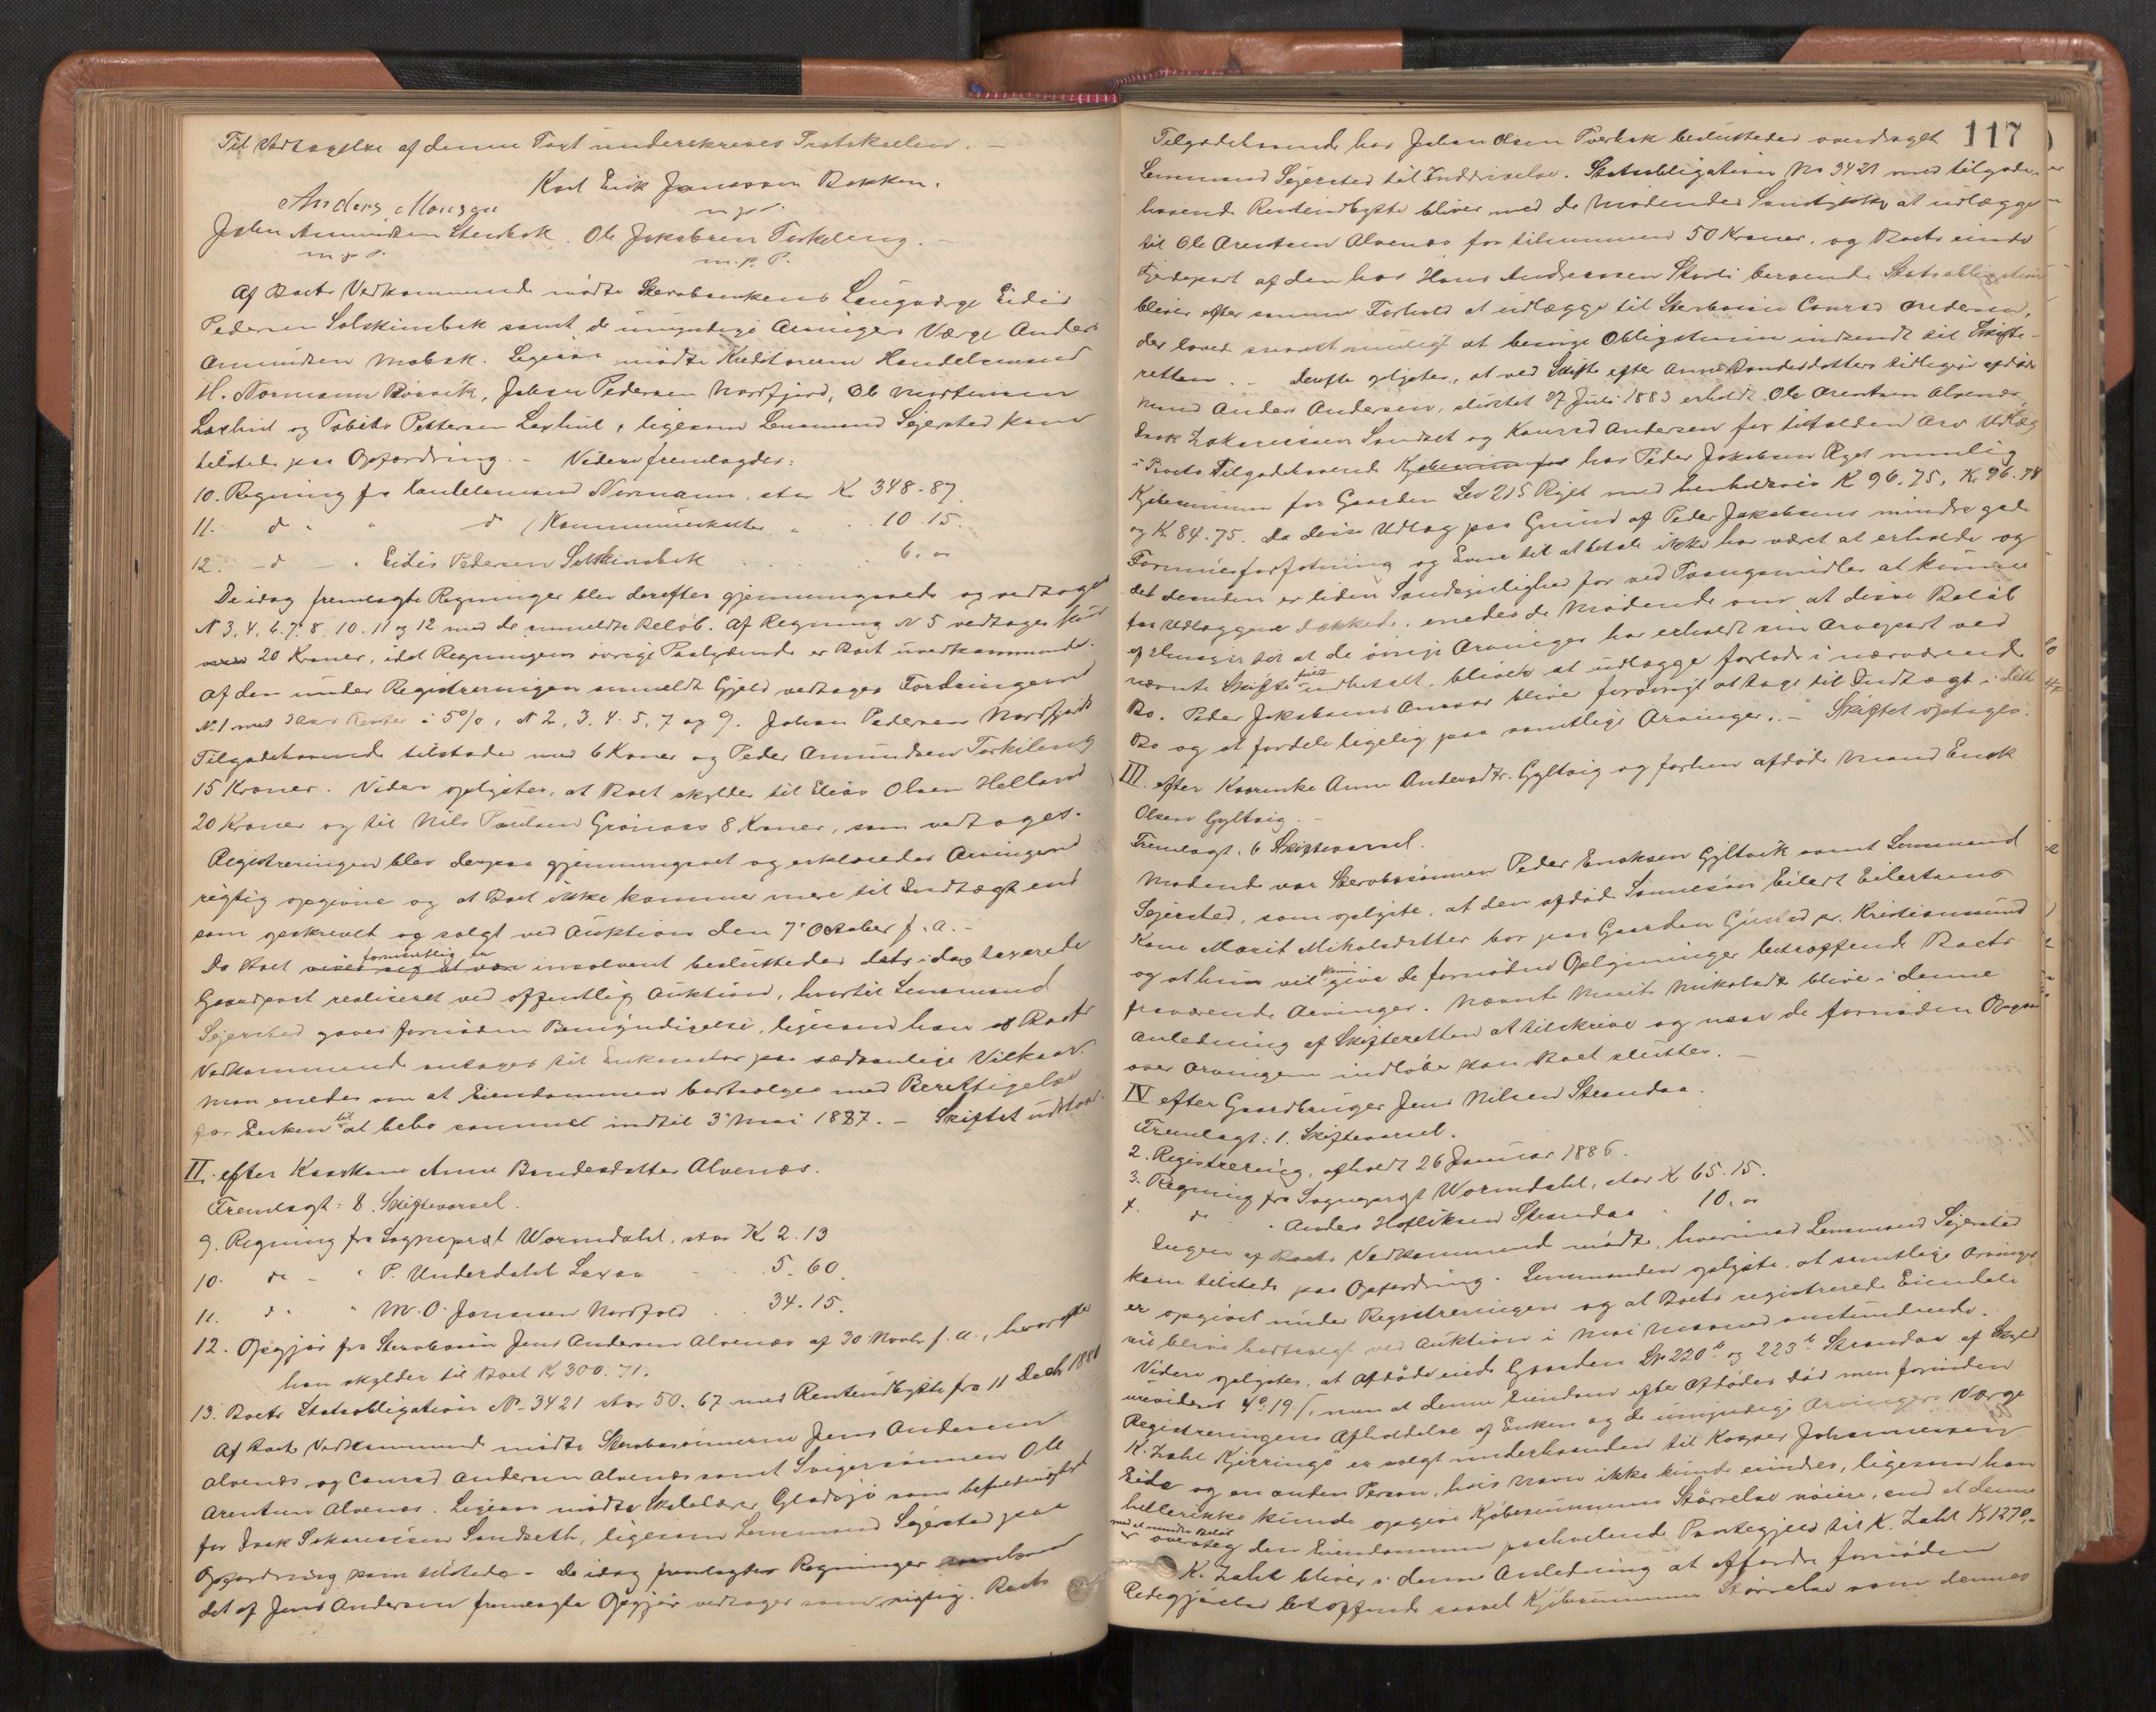 Til Vedtagelse af denne Taxt underskrives Protokollen. -
Karl Erik Jonasson Bakken.
m. p. P.
Anders Monsen
John Amundsen Stenbak. Ole Jakobsen Torkeleng. -
m. p. P.
m. p. P.
Af Boets Vedkommende mødte Stervbænkens Laugværge Eidis
Pedersen Solskinsbak samt de umyndige Arvingers Værge Anders
Amundsen Mobak. Ligesaa mødte Kreditorerne Handelsmand
H. Normann Rörvik, Johan Pedersen Nordfjord, Ole Mortensen
Laxhul og Tobias Pettersen Laxhul, ligesom Lensmand Sejersted kom
tilstede paa Opfordring. - Videre fremlagdes:
10. Regning fra Handelsmand Normann, stor K 348-87
11. do " " do (Kommuneskatter " . 10.15.
12. - do - " Eidis Pedersen Solskinsbak . . 6. "
De idag fremlagte Regninger blev derefter gjennemgaaede og vedtoges
N 3, 4, 6. 7. 8. 10. 11 og 12 med de anmeldte Beløb. Af Regning N 5 vedtages kun
20 Kroner, idet Regningens øvrige Paalydende er Boet uvedkommende.
Af den under Registreringen anmeldte Gjeld vedtages Fordringerne
N. 1 med 3 Aars Renter à 5%, N 2, 3. 4. 5. 7 og 9. Johan Pedersen Nordfjords
Tilgodehavende tilstodes med 6 Kroner og Peder Amundsen Torkileng
15 Kroner. Videre oplystes, at Boet skylder til Elias Olsen Helland
20 Kroner og til Nils Paulsen Grönaas 8 Kroner, som vedtoges.
Registreringen blev derpaa gjennemgaaet og erklæredes Arvingerne
rigtig opgivne og at Boet ikke kommer mere til Indtægt end
som opskrevet og solgt ved Auktion den 7' October f. a. -
Da Boet viser sig at være formentlig er insolvent besluttedes dets idag taxerede
Gaardpart realiseret ved offentlig Auktion, hvortil Lensmand
Sejersted gaves fornøden Bemyndigelse, ligesom han af Boets
Vedkommende antages til Inkassator paa sædvanlige Vilkaar.
Man enedes om at Eiendommen bortsælges med Berettigelse
for Enken til at bebo sammel indtil 3' Mai 1887. - Skiftet udstaar.
II. efter Kaarkone Anne Bendesdatter Alvenæs.
Fremlagt: 8. Skiftevarsel.
9. Regning fra Sogneprest Wormdahl, stor K 2. 13
10. do - " P. Underdahl Laxaa - . 5. 60.
11. do " " M. O. Jonassen Nordfold . . 34. 15.
12. Opgjør fra Stervbosøn Jens Andersen Alvenæs af 30 Novbr f. a., hvorefter
han skylder til Boet K 300. 71.
13. Boets Statsobligation N. 3421 stor 50. 67 med Renteudbytte fra 11 Decb 1881
Af Boets Vedkommende mødte Stervbosønnerne Jens Andersen
Alvenæs og Conrad Andersen Alvenæs samt Svigersønnen Ole
Arentsen Alvenæs. Ligesaa mødte Skolelærer Gladsjø som befuldmægtiget
for Isak Sakariassen Sandseth, ligesom Lensmand Sejersted paa
Opfordring kom tilstede. - De idag fremlagte Regninger samt
det af Jens Andersen fremlagte Opgjør vedtages som rigtig. Boets
117
Tilgodehavende hos Johan Olsen Tverbak besluttedes overdraget
Lensmand Sejersted til Inddrivelse. Statsobligation No 3421 med tilgode-
havende Renteudbytte bliver med de Mødendes Samtykke at udlægge
til Ole Arentsen Alvenæs for tilsammen 50 Kroner, og Boets eiende
Fjerdepart af den hos Hans Andreassen Storli beroende Statsobligation
bliver efter samme Forhold at udlægge til Stervbosøn Conrad Andersen,
der loved snarest muligt at besørge Obligationen indsendt til Skifte-
retten. - Derefter oplystes, at ved Skifte efter Anne Bendesdatters tidligere afdøde
Mand Anders Andersen, sluttet 27 Juli 1883 erholdt Ole Arentsen Alvenæs,
Isak Zakariassen Sandset og Konrad Andersen for tilfalden Arv Udlæg
i Boets Tilgodehavende Kjøbesum for hos Peder Jakobsen Ryet nemlig
Kjøbesummen for Gaarden Lno 215 Ryet med henholdsvis K 96.75, K. 96.74
og K. 84.75. Da disse Udlæg paa Grund af Peder Jakobsens mindre gode
Formuesforfatning og Evne til at betale ikke har været at erholde og
det desuden er liden Sandsynlighed for ved Tvangsmidler at kunne
faa Udlæggene dækkede, enedes de Mødende om, at disse Beløb
af Hensyn til at de øvrige Arvinger har erholdt sin Arvepart ved
nævnte Skifte fuldt udbetalt, bliver at udlægge forlods i nærværende
Bo. Peder Jakobsens Ansvar bliver forøvrigt at tage til Indtægt i dette
Bo og at fordele ligelig paa samtlige Arvinger. - Skiftet optages.
III. efter Kaarenke Anne Andersdtr. Gyltvig og forhen afdøde Mand Enok
Olsen Gyltvig. -
Fremlagt: 6 Skiftevarsel.
Mødende var Stervbosønnen Peder Enoksen Gyltvik samt Lensmand
Sejersted, som oplyste, at den afdøde Sønnesøn Eilert Eilertsens
Kone Marit Mikalsdatter bor paa Gaarden Gustad pr. Kristianssund
og at hun vil kunne give de fornødne Oplysninger betræffende Boets
fraværende Arvinger. Nævnte Marit Mikalsdtr bliver i denne
Anledning af Skifteretten at tilskrive og naar de fornøden Opgave
over Arvingerne indløber kan Boet sluttes. -
IV efter Gaardbruger Jens Nilsen Strandaa.
Fremlagt: 1. Skiftevarsel.
2. Registrering, afholdt 26 Januar 1886.
3. Regning fra Sogneprest Wormdahl, stor K 65. 15.
4. do " Anders Hofliksen Strandaa " 10. "
Ingen af Boets Vedkommende mødte, hvorimod Lensmand Sejersted
kom tilstede paa Opfordring. Lensmanden oplyste, at samtlige Arvinger
er opgivet under Registreringen og at Boets registrerede Eiendele
vil blive bortsolgt ved Auktion i Mai Maaned anstundende.
Videre oplystes, at Afdøde eiede Gaarden Lno 220 b og 223 b Strandaa af Skyld
urevideret 4 o 19 ſ, men at denne Eiendom efter Afdødes død men forinden
Registreringens Afholdelse af Enken og de umyndige Arvingers Værge
K. Zahl Kjerringø er solgt underhaanden til Kasper Johannessen
Eide og en anden Person, hvis Navn ikke kunde erindres, ligesom han
hellerikke kunde opgive Kjøbesummens Størrelse nøiere, end at denne
med et mindre Beløb oversteg den Eiendommen paahvilende Pantegjeld til K. Zahl K 1270,-
K. Zahl bliver i denne Anledning at affordre fornøden
Redegjørelse betræffende saavel Kjøbesummens Størrelse som dennes